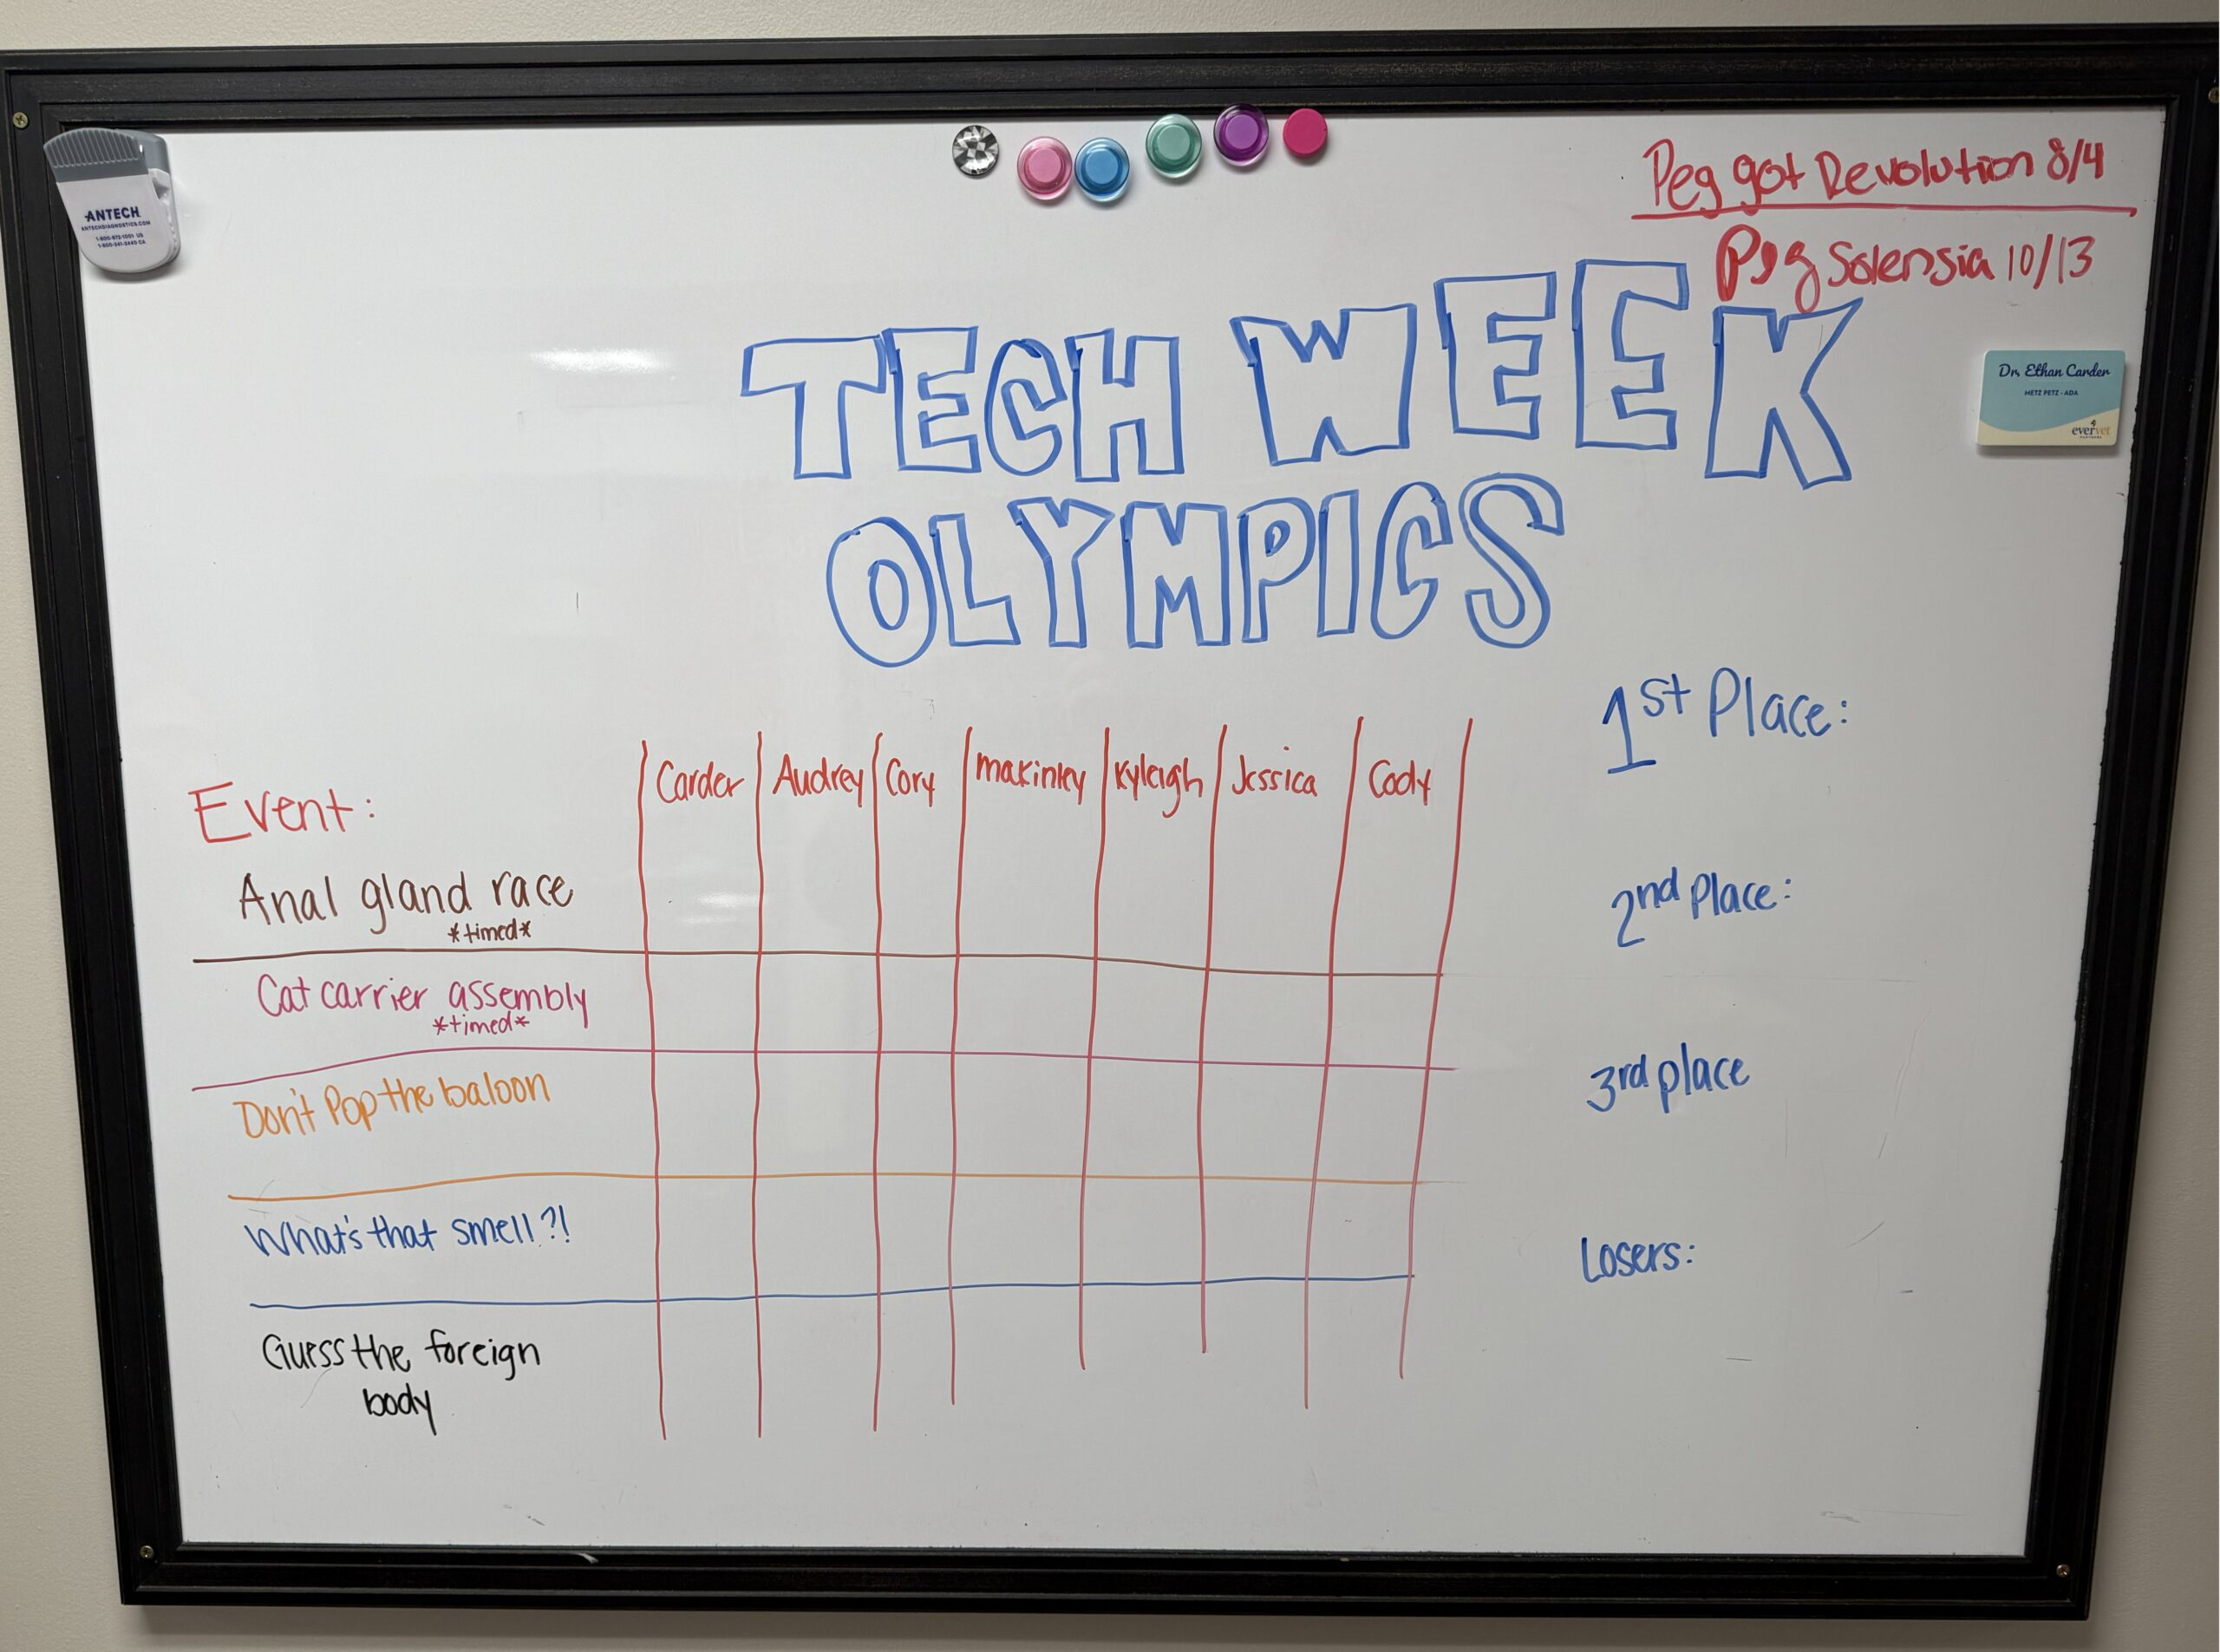 ANTECH
ANTECHDIAGNOSTICS.COM
1-800-872-1001 US
1-800-341-3440 CA
Peg got Revolution 8/4
Peg Solensia 10/13
TECH WEEK
OLYMPICS
Dr. Ethan Carder
METZ PETZ - ADA
evervet
PARTNERS
Event:
Carder Audrey Cory makinley Kyleigh Jessica Cody
Anal gland race
*timed*
Cat carrier assembly
*timed*
Don't Pop the baloon
What's that smell?!
Guess the foreign
body
1st Place:
2nd Place:
3rd place
Losers: